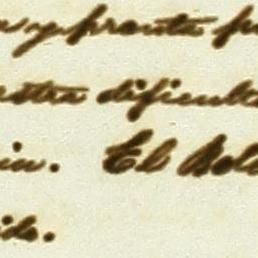 y pronta
estra dificult
in. El Bol
ide.